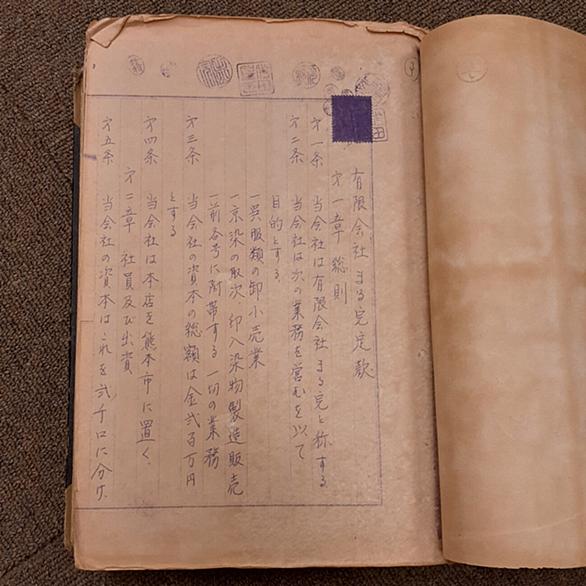 有限会社まる完定款
第一章 総則
第一条 当会社は有限会社まる完と称する
第二条 当会社は次の業務を営むを以て
目的とする
一呉服類の卸小売業
一京染の取次、印入染物製造販売
一前各号に附帯する一切の業務
第三条 当会社の資本の総額は金弐百万円
とする
第四条 当会社は本店を熊本市に置く
第二章 社員及び出資
第五条 当会社の資本はこれを弐千口に分け、